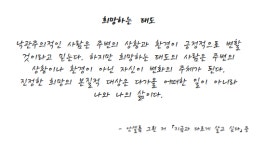 희망하는 태도
낙관주의적인 사람은 주변의 상황과 환경이 긍정적으로 변할
것이라고 믿는다. 하지만 희망하는 태도의 사람은 주변의
상황이나 환경이 아닌 자신이 변화의 주체가 된다.
진정한 희망의 본질적 대상은 다가올 어떠한 일이 아니라
나와 나의 삶이다.
- 안셀름 그륀 저 「지금과 다르게 살고 싶다」 중